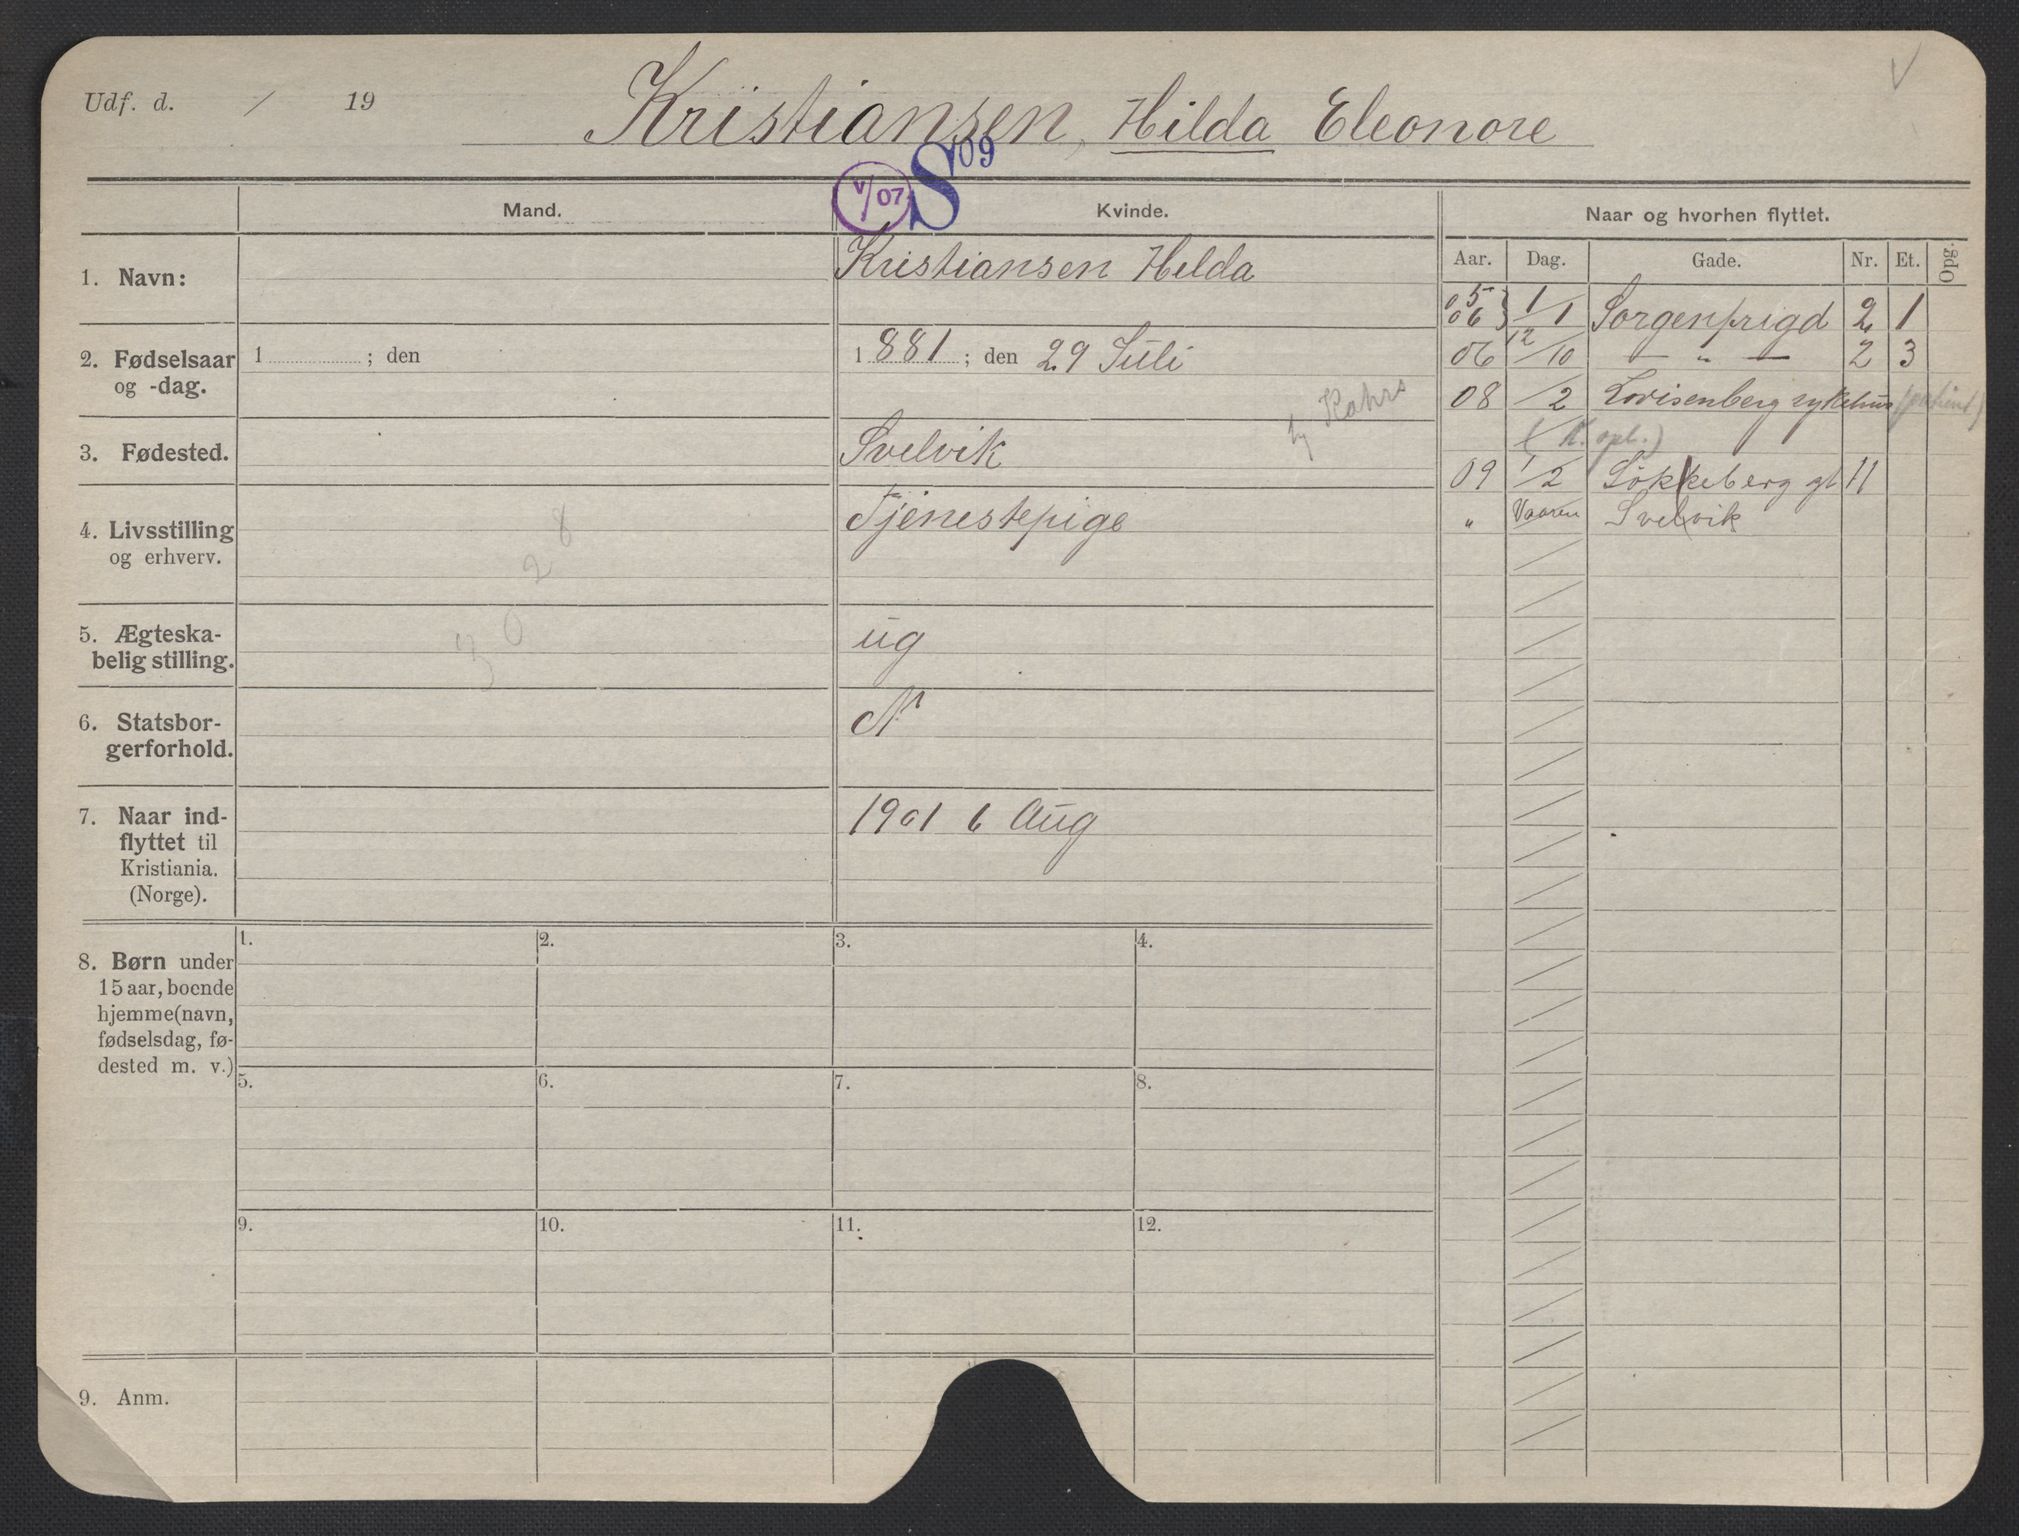 Udf. d. / 19
Kristiansen, Hilda Eleonore
V
V/07 S 09
Mand.
Kvinde.
Naar og hvorhen flyttet.
Aar. Dag. Gade. Nr. Et. Opg.
1. Navn:
Kristiansen Hilda
2. Fødselsaar
og -dag.
1 ; den
1881 ; den 29 Juli
3. Fødested.
Svelvik
4. Livsstilling
og erhverv.
Tjenestepige
5. Ægteska-
belig stilling.
ug
6. Statsbor-
gerforhold.
N
7. Naar ind-
flyttet til
Kristiania.
(Norge).
1901 6 Aug
3028
05 06 } 1/1 Sorgenfrigd 2 1
06 12/10 — " — 2 3
08 /2 Lovisenberg sykehus (patient)
( opl.)
09 1/2 Løkkeberg gt 11
" Vaaren Svelvik
8. Børn under
15 aar, boende
hjemme (navn,
fødselsdag, fø-
dested m. v.)
1. 2. 3. 4.
5. 6. 7. 8.
9. 10. 11. 12.
9. Anm.